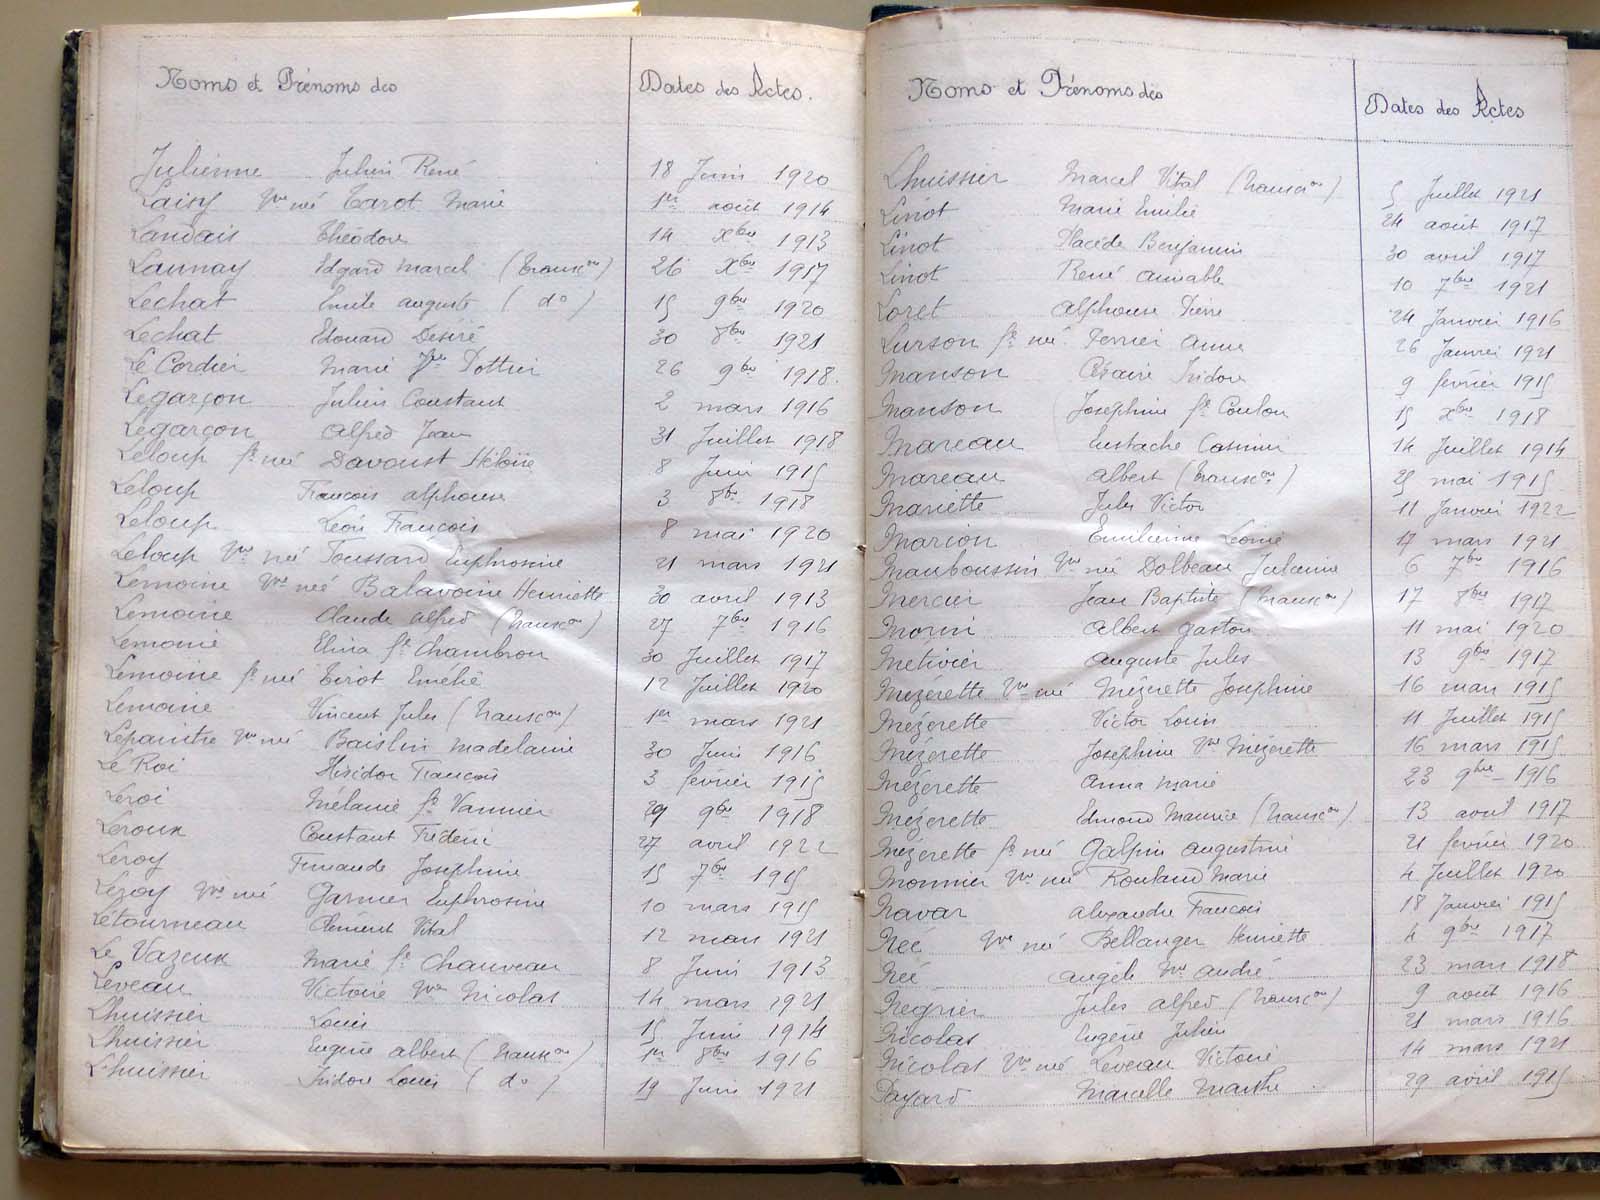 Noms et Prénoms des Dates des Actes.
Julienne Julien René 18 Juin 1920
Laisy Vve née Tarot Marie 1er août 1914
Landais Théodore 14 Xbre 1913
Launay Edgard Marcel (transcon) 26 Xbre 1917
Lechat Emile Auguste (do) 15 9bre 1920
Lechat Edouard Désiré 30 8bre 1921
Le Cordier Marie Vve Pottier 26 9bre 1918.
Legarçon Julien Constant 2 mars 1916
Legarçon Alfred Jean 31 Juillet 1918
Leloup fe née Davoust Héloïse 8 Juin 1915
Leloup François Alphonse 3 8bre 1918
Leloup Léon François 8 mai 1920
Leloup Vve née Toussard Euphrosine 21 mars 1921
Lemoine Vve née Balavoine Henriette 30 avril 1913
Lemoine Claude Alfred (transcon) 27 7bre 1916
Lemoine Elina fe Chambron 30 Juillet 1917
Lemoine fe née Tirot Emélie 12 Juillet 1920
Lemoine Vincent Jules (transcon) 1er mars 1921
Lepaintre Vve née Baislin Madelaine 30 Juin 1916
Le Roi Isidor François 3 février 1915
Leroi Mélanie fe Vannier 29 9bre 1918
Leroux Constant Fréderic 27 avril 1922
Leroy Fernande Joséphine 15 7bre 1915
Leroy Vve née Garnier Euphrosine 10 mars 1915
Létourneau Clément Vital 12 mars 1921
Le Vazeux Marie fe Chauveau 8 Juin 1913
Leveau Victoire Vve Nicolas 14 mars 1921
Lhuissier Louis 15 Juin 1914
Lhuissier Eugène Albert (transcon) 1er 8bre 1916
Lhuissier Isidore Louis (do) 19 Juin 1921
Noms et Prénoms des Dates des Actes
Lhuissier Marcel Vital (transcon) 5 Juillet 1921
Linot Marie Emilie 24 août 1917
Linot Placède Benjamin 30 avril 1917
Linot René Aimable 10 7bre 1921
Loret Alphonse Pierre 24 Janvier 1916
Lurson fe née Ferrier Anne 26 Janvier 1921
Manson Césaire Isidore 9 février 1915
Manson Joséphine fe Coulon 15 Xbre 1918
Mareau Eustache Casimir 14 Juillet 1914
Mareau Albert (transcon) 25 mai 1915
Mariette Jules Victor 11 Janvier 1922
Marion Emilienne Léonie 17 mars 1921
Mauboussin Vve née Dolbeau Julienne 6 7bre 1916
Mercier Jean Baptiste (transcon) 17 8bre 1917
Morin Albert Gaston 11 mai 1920
Metivier Auguste Jules 13 9bre 1917
Mézerette Vve née Mézerette Joséphine 16 mars 1915
Mézerette Victor Louis 11 Juillet 1915
Mézerette Joséphine Vve Mézerette 16 mars 1915
Mézerette Anna Marie 23 9bre 1916
Mézerette Edmond Maurice (transcon) 13 avril 1917
Mézerette fe née Galpin Augustine 21 février 1920
Monnier Vve née Rouland Marie 4 Juillet 1920
Navar Alexandre François 18 Janvier 1915
Née Vve née Bellanger Henriette 4 9bre 1917
Née Angèle Vve André 23 mars 1918
Negrier Jules Alfred (transcon) 9 août 1916
Nicolas Eugène Julien 21 mars 1916
Nicolas Vve née Leveau Victoire 14 mars 1921
Payard Marcelle Marthe 29 avril 1915